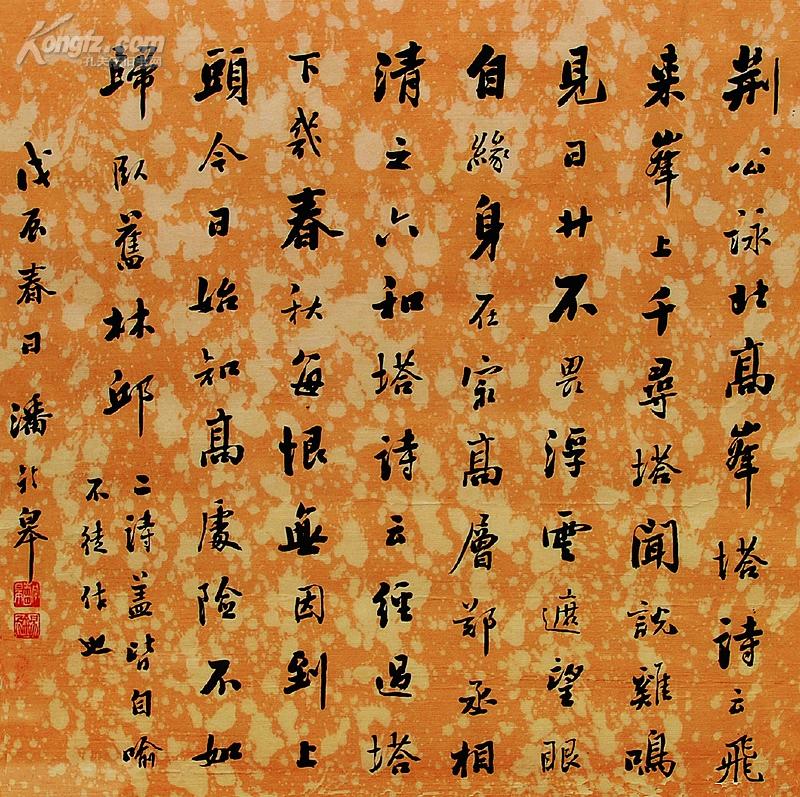 荆公詠北高峯塔詩云飛
来峯上千尋塔聞說雞鳴
見日升不畏浮雲遮望眼
自緣身在最高層鄭丞相
清之六和塔詩云經過塔
下幾春秋每恨無因到上
頭今日始知高處險不如
歸臥舊林邱
二詩蓋皆自喻
不徒作也
戊辰春日潘齡皋
Kongfz.com
孔夫子旧书网